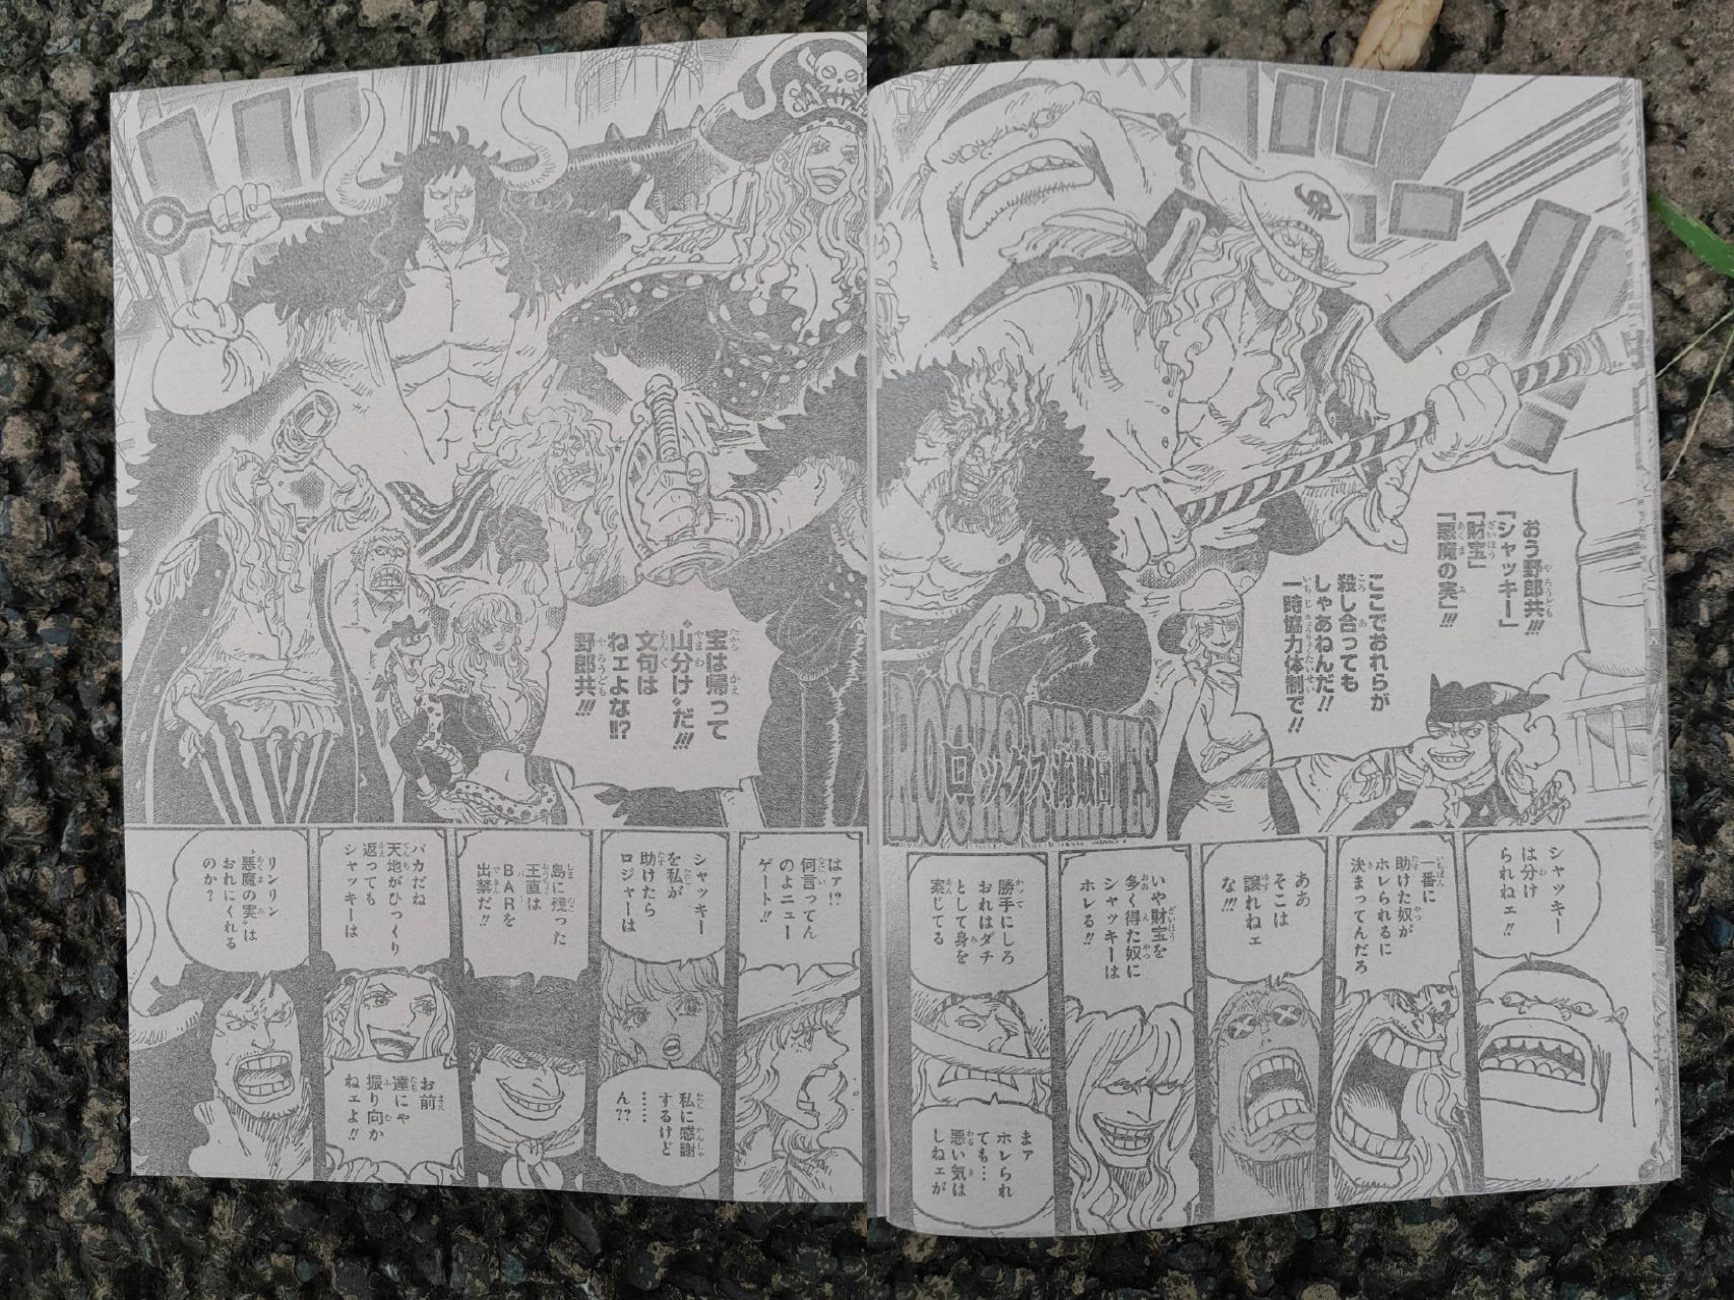 おう野郎共!!!
「シャッキー」
「財宝」
「悪魔の実」!!!
ここでおれらが
殺し合っても
しゃあねんだ!!
一時協力体制で!!
ROCKS PIRATES
ロックス海賊団
宝は帰って
“山分け”だ!!!
文句は
ねェよな!?
野郎共!!!
シャッキー
は分け
られねェ!!
一番に
助けた奴が
ホレられるに
決まってんだろ
ああ
そこは
譲れねェ
な!!!
いや財宝を
多く得た奴に
シャッキーは
ホレる!!
勝手にしろ
おれはダチ
として身を
案じてる
まァ
ホレられ
ても…
悪い気は
しねェが
はァ!?
何言ってん
のよニュー
ゲート!!
シャッキー
を私が
助けたら
ロジャーは
私に感謝
するけど
……
ん??
島に残った
王直は
BARを
出禁だ!!
バカだね
天地がひっくり
返っても
シャッキーは
お前
達にゃ
振り向か
ねェよ!!
リンリン
“悪魔の実”は
おれにくれる
のか?